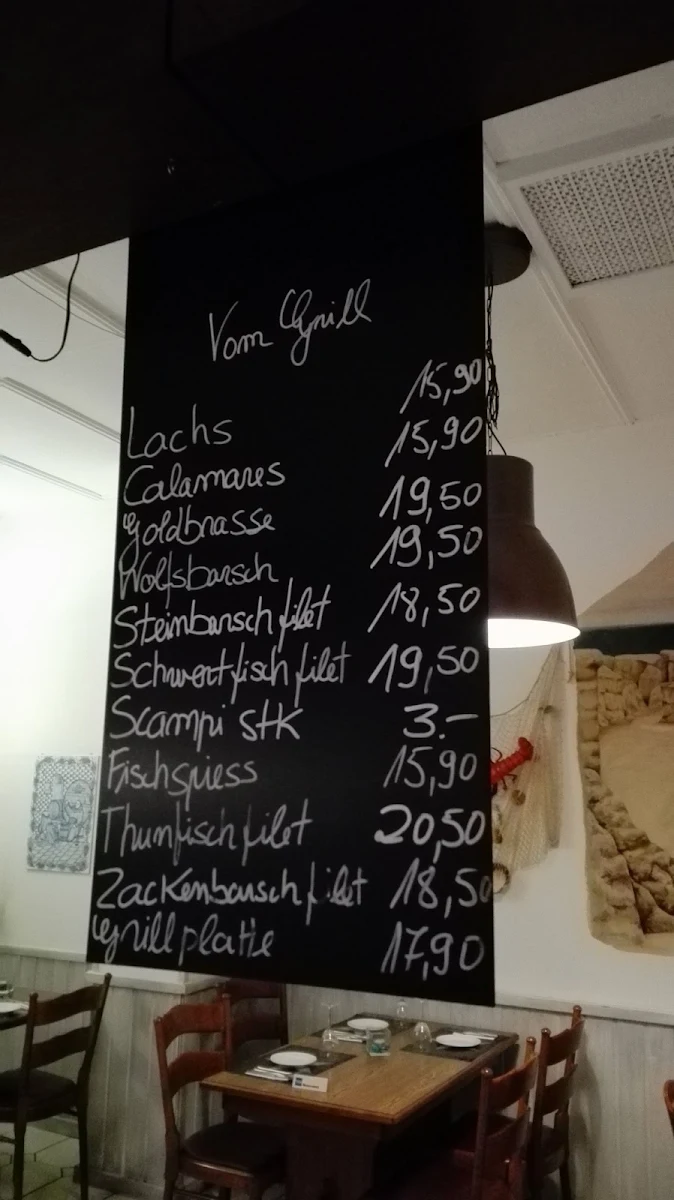 Vom Grill
Lachs 15,90
Calamares 15,90
Goldbrasse 19,50
Wolfsbarsch 19,50
Steinbarschfilet 18,50
Schwertfischfilet 19,50
Scampi Stk 3.-
Fischspiess 15,90
Thunfischfilet 20,50
Zackenbarschfilet 18,50
Grillplatte 17,90